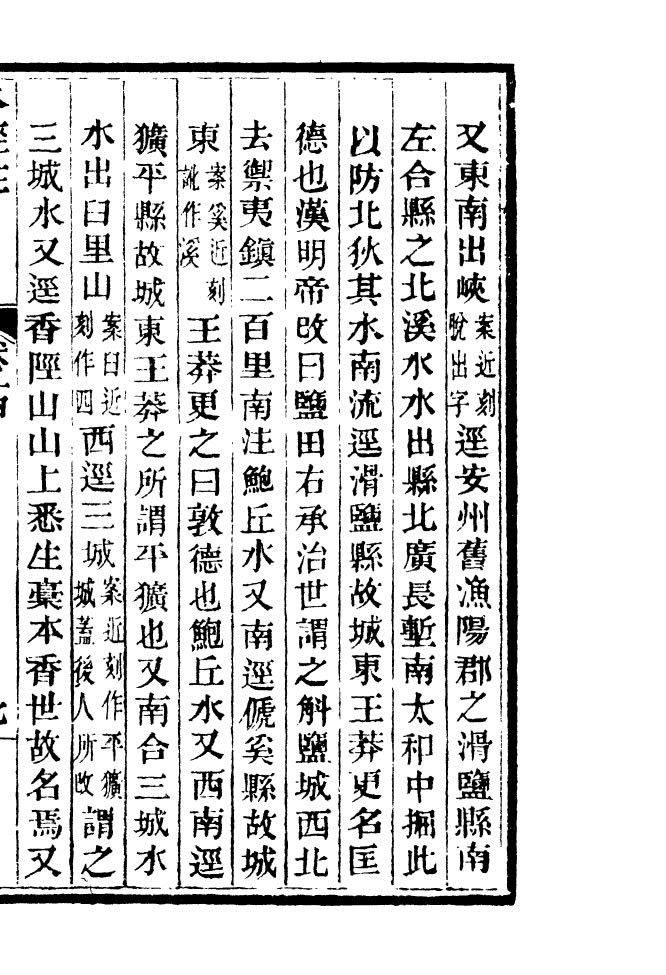 又東南出峽案近刻脫出字逕安州舊漁陽郡之滑鹽縣南
左合縣之北溪水水出縣北廣長塹南太和中掘此
以防北狄其水南流逕滑鹽縣故城東王莽更名匡
德也漢明帝改曰鹽田右承治世謂之斛鹽城西北
去禦夷鎮二百里南注鮑丘水又南逕傂奚縣故城
東案奚近刻訛作溪王莽更之曰敦德也鮑丘水又西南逕
獷平縣故城東王莽之所謂平獷也又南合三城水
水出臼里山案臼近刻作四西逕三城案近刻作平獷城蓋後人所改謂之
三城水又逕香陘山山上悉生稾本香世故名焉又